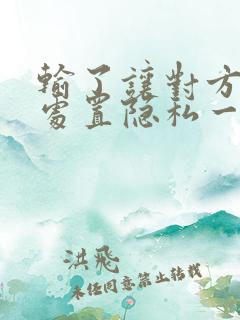 輸了讓對方
處置隐私一
洪飛
未任同意禁止转载